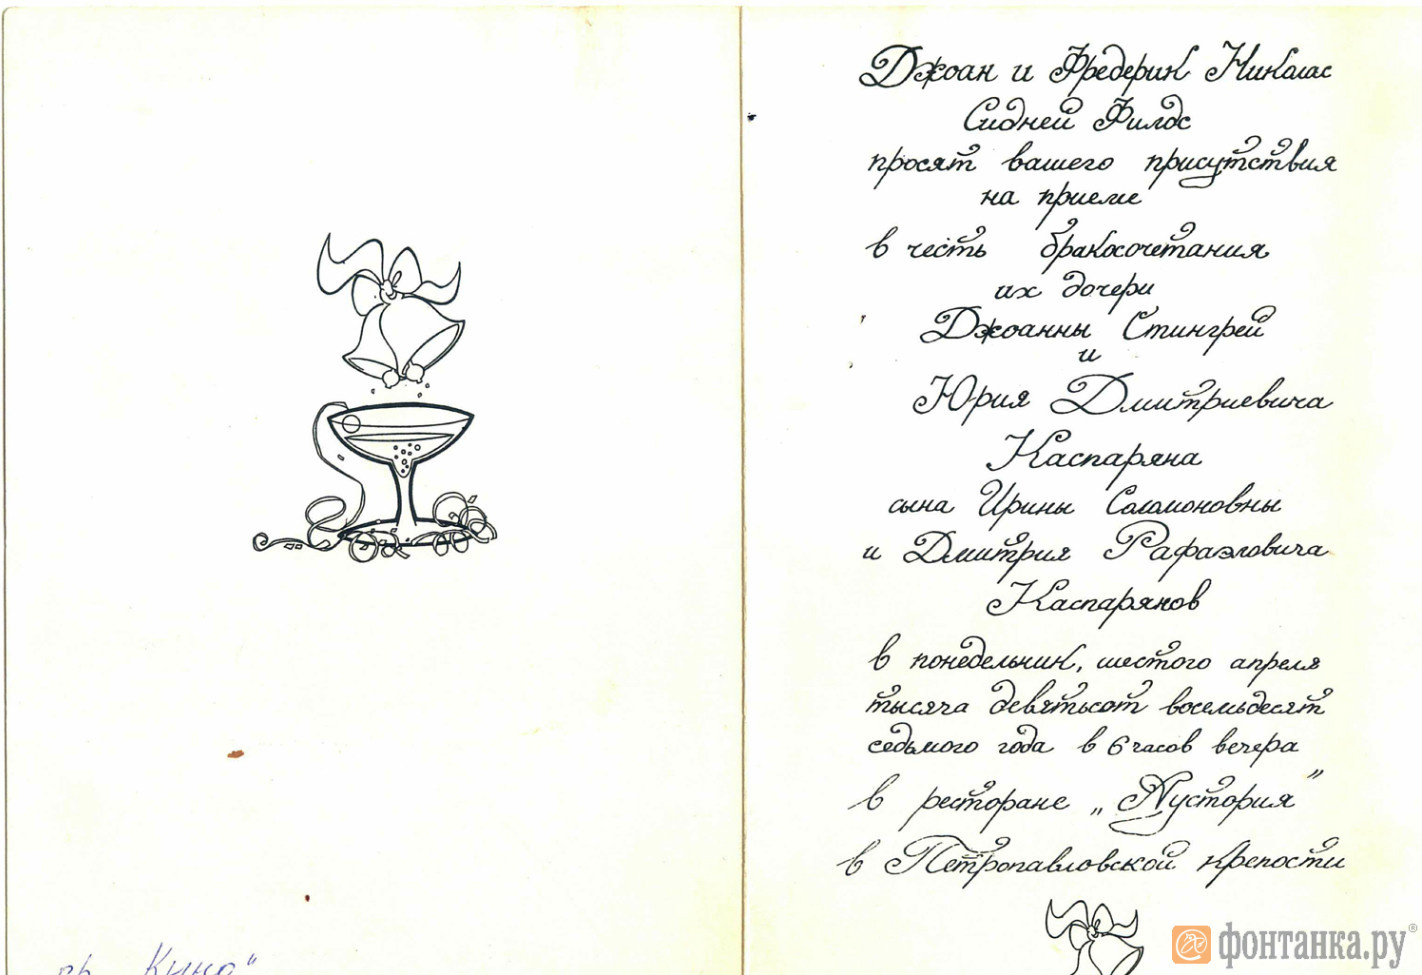 гр. „Кино"
Джоан и Фредерик Николас
Сидней Филдс
просят вашего присутствия
на приеме
в честь бракосочетания
их дочери
Джоанны Стингрей
и
Юрия Дмитриевича
Каспаряна
сына Ирины Соломоновны
и Дмитрия Рафаэловича
Каспарянов
в понедельник, шестого апреля
тысяча девятьсот восемьдесят
седьмого года в 6 часов вечера
в ресторане „Аустория"
в Петропавловской крепости
фонтанка.ру®